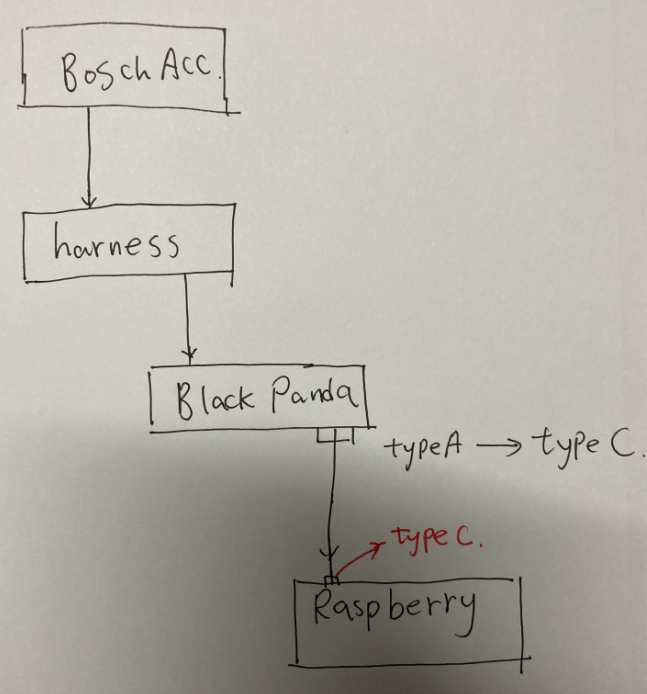 Bosch Acc.
harness
Black Panda
typeA → type C.
type C.
Raspberry